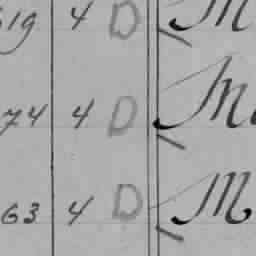 619 4 D M
74 4 D M
63 4 D M